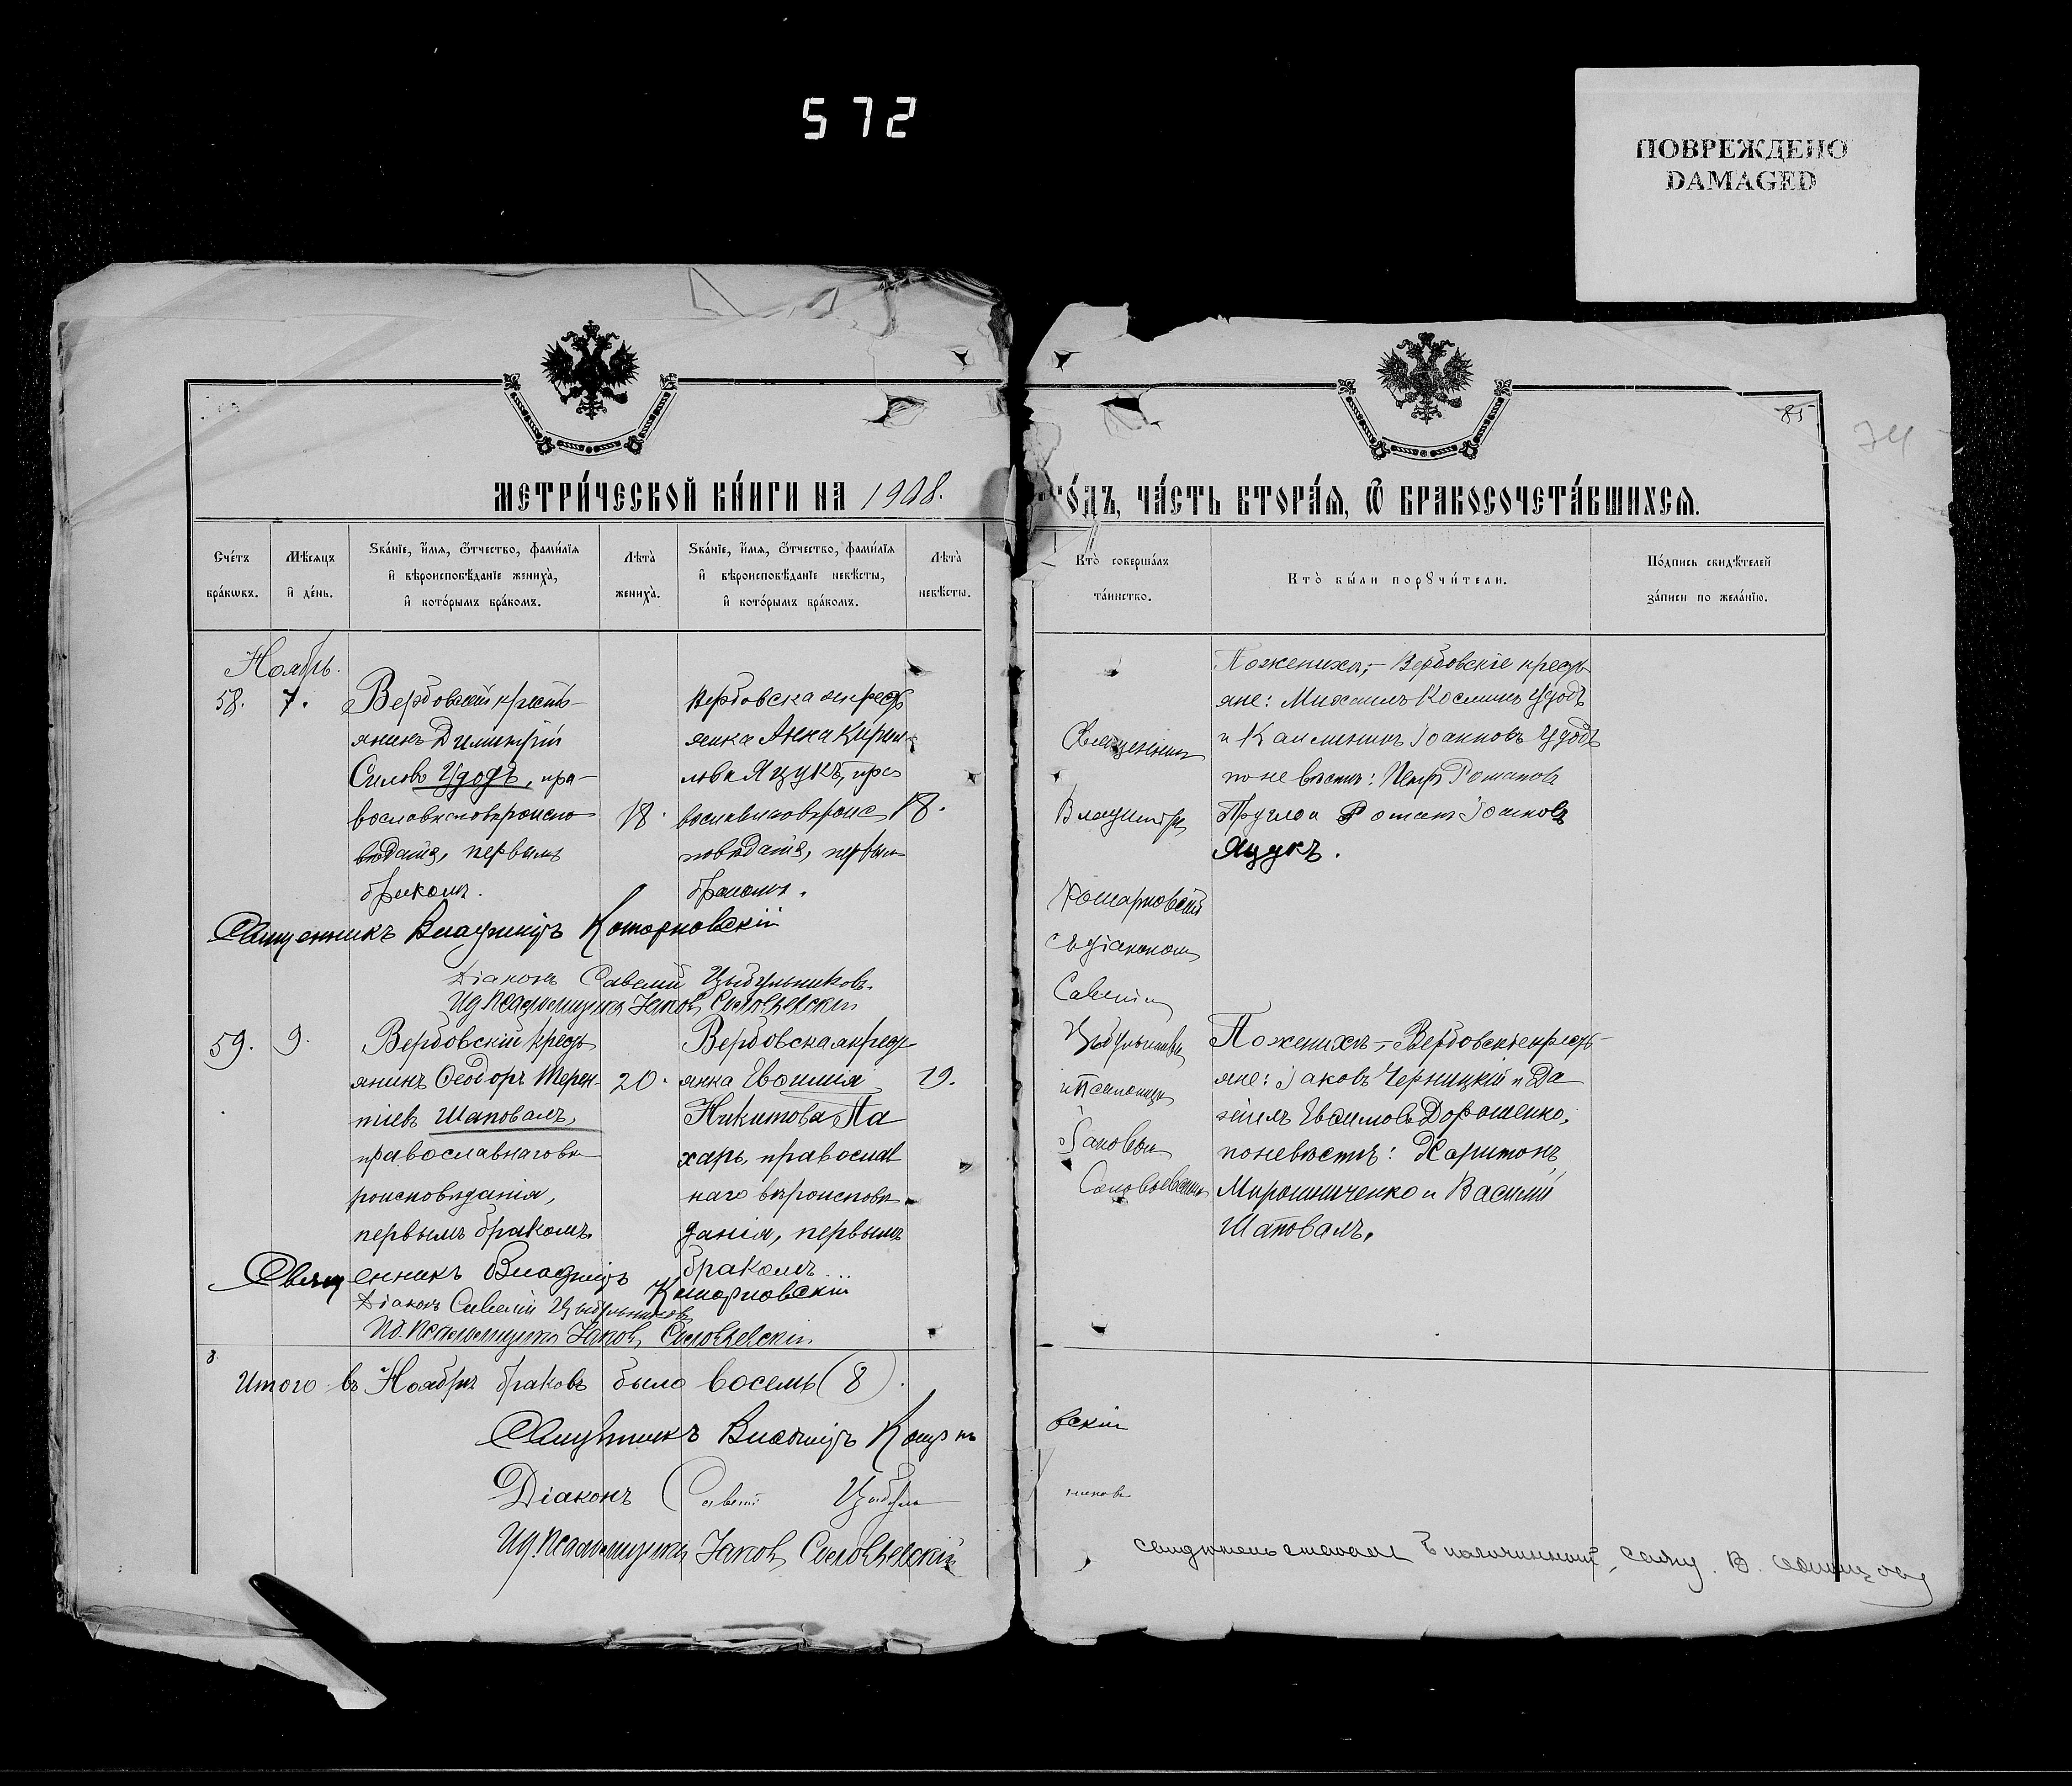 572
ПОВРЕЖДЕНО
DAMAGED
85
74
МЕТРИ́ЧЕСКОЙ КНИ́ГИ НА 1908.
ГО́ДЪ, ЧА́СТЬ ВТОРА́Я, Ѿ БРАКОСОЧЕТА́ВШИХСЯ.
Счетъ бра́кѡвъ.
Мѣсяцъ и де́нь.
Ѕва́нїе, и́мя, ѻ́тчество, фами́лїя и вѣроисповѣданїе жениха̀, и кото́рымъ бра́комъ.
Лѣта̀ жениха̀.
Ѕва́нїе, и́мя, ѻ́тчество, фами́лїя и вѣроисповѣданїе невѣсты, и кото́рымъ бра́комъ.
Лѣта̀ невѣсты.
Кто̀ соверша́лъ та́инство.
Кто̀ бы́ли порꙋчи́тели.
По́дпись свидѣтелей за́писи по жела́нїю.
Ноябрь.
58.
7.
Вербовскій кресть-
янинъ Димитрій
Силовъ Удодъ, пра-
вославнаго вѣроиспо-
вѣданія, первымъ
бракомъ.
18.
Вербовская крестъ
янка Анна Кирил-
лова Яцукъ, пра
вославнаго вѣроис
повѣданія, первым
бракомъ.
18.
Священник
Владиміръ
Комарновскій
съ діакономъ
Савеліем
Цыбульниковы
и Псаломщ
Іаковом
Соловьевским
По женихѣ,- Вербовскіе кресть
яне: Михаилъ Косминъ Удодъ
и Каллиникъ Іоанновъ Удодъ
по невѣстѣ: Петръ Романовъ
и Романъ Іоанновъ
Яцукъ.
Священникъ Владиміръ Комарновскій
Діаконъ Савелій Цыбульниковъ.
Ид. Псаломщика Іаковъ Соловьевскій
59.
9.
Вербовскій кресть
янинъ Ѳеодоръ Терен-
тіевъ Шаповалъ,
православнаго вѣ-
роисповѣданія,
первымъ бракомъ.
20.
Вербовская кресть
янка Евѳимія
Никитова Па
харь, православ
наго вѣроисповѣ
данія, первымъ
бракомъ.
19.
По женихѣ,- Вербовскіе кресть-
яне: Іаковъ Черницкій и Да
ніилъ Евѳимовъ Дорошенко,
по невѣстѣ: Харитонъ
Мирошниченко и Василій
Шаповалъ.
Священникъ Владиміръ Комарновскій
Діаконъ Савелій Цыбульниковъ
Ид. Псаломщика Іаковъ Соловьевскій.
8
Итого въ Ноябрѣ браковъ было восемь (8).
Священникъ Владиміръ Комарновскій
Діаконъ Савелій Цыбульниковъ
Ид. Псаломщика Іаковъ Соловьевскій
Благочинный, свящ. В.